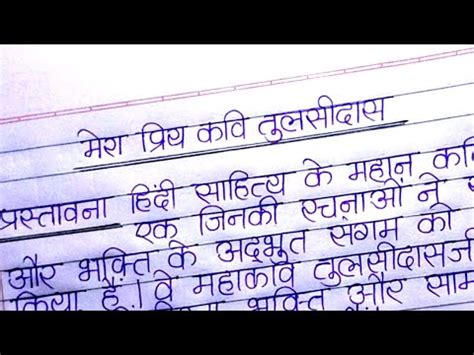 मेरा प्रिय कवि तुलसीदास
प्रस्तावना हिंदी साहित्य के महान
एक जिनकी रचनाओं ने
और भक्ति के अद्भुत संगम को
किया है। वे महाकवि तुलसीदासजी
भक्ति और